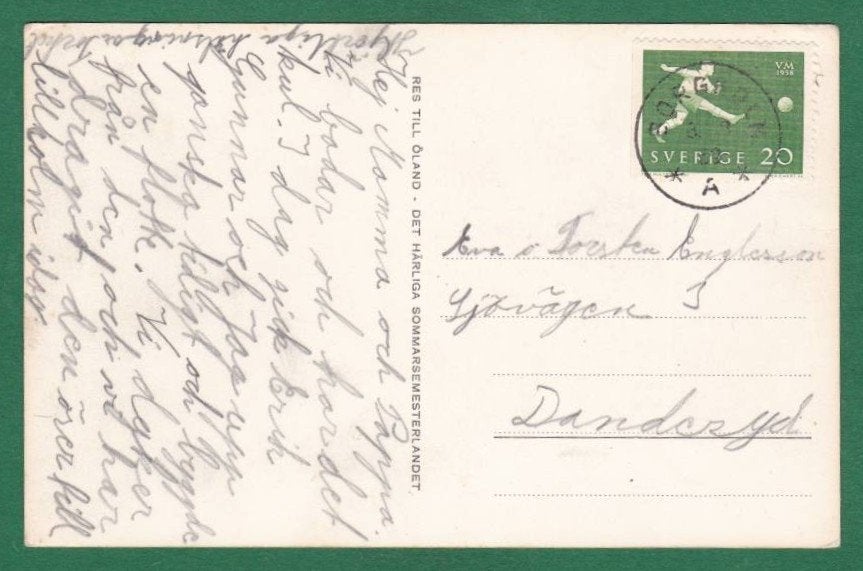 Hej Mamma och Pappa.
Vi badar och har det
kul. I dag gick Erik
Gunnar och Jag upp
ganska tidigt och byggde
en flotte. Vi dyker
från den och vi har
dragit den över till
lillholm
Hjärtliga hälsningar
RES TILL ÖLAND - DET HÄRLIGA SOMMARSEMESTERLANDET.
VM
1958
SVERIGE 20
BORGHOLM
A
Eva o Torsten
Sjövägen 3
Danderyd